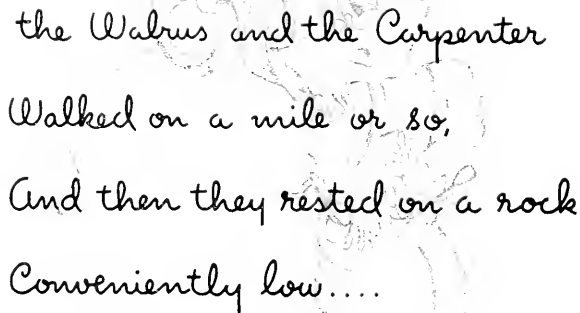 the Walrus and the Carpenter
Walked on a mile or so,
And then they rested on a rock
Conveniently low....